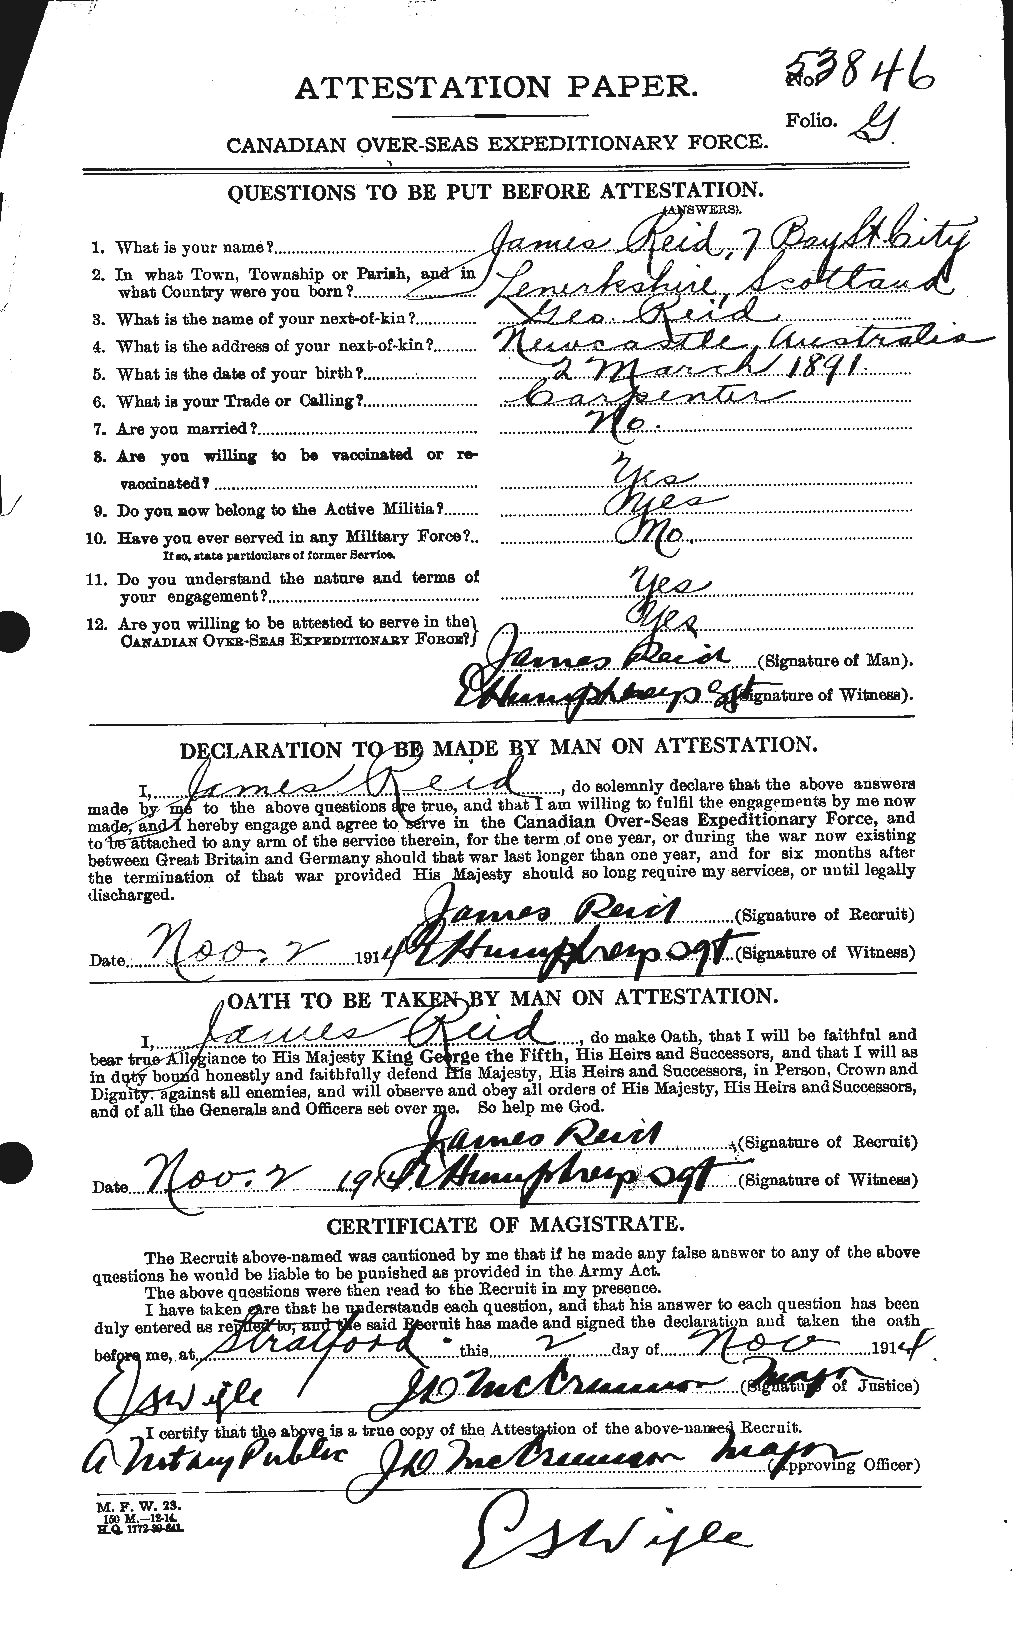 53846
No.
ATTESTATION PAPER.
Folio. G
CANADIAN OVER-SEAS EXPEDITIONARY FORCE.
QUESTIONS TO BE PUT BEFORE ATTESTATION.
(ANSWERS).
1. What is your name? James Reid, 7 Bay St City
2. In what Town, Township or Parish, and in
what Country were you born? Lenerkshire, Scotland
3. What is the name of your next-of-kin? Geo Reid
4. What is the address of your next-of-kin? Newcastle, Australia
5. What is the date of your birth? 2 March 1891.
6. What is your Trade or Calling? Carpenter
7. Are you married? No.
8. Are you willing to be vaccinated or re-
vaccinated? Yes
9. Do you now belong to the Active Militia? Yes
10. Have you ever served in any Military Force? No.
If so, state particulars of former Service.
11. Do you understand the nature and terms of
your engagement? Yes
12. Are you willing to be attested to serve in the
CANADIAN OVER-SEAS EXPEDITIONARY FORCE? Yes
James Reid (Signature of Man).
E Humphreys Sgt (Signature of Witness).
DECLARATION TO BE MADE BY MAN ON ATTESTATION.
I, James Reid, do solemnly declare that the above answers
made by me to the above questions are true, and that I am willing to fulfil the engagements by me now
made, and I hereby engage and agree to serve in the Canadian Over-Seas Expeditionary Force, and
to be attached to any arm of the service therein, for the term of one year, or during the war now existing
between Great Britain and Germany should that war last longer than one year, and for six months after
the termination of that war provided His Majesty should so long require my services, or until legally
discharged.
James Reid (Signature of Recruit)
Date Nov. 2 1914 E Humphreys Sgt (Signature of Witness)
OATH TO BE TAKEN BY MAN ON ATTESTATION.
I, James Reid, do make Oath, that I will be faithful and
bear true Allegiance to His Majesty King George the Fifth, His Heirs and Successors, and that I will as
in duty bound honestly and faithfully defend His Majesty, His Heirs and Successors, in Person, Crown and
Dignity, against all enemies, and will observe and obey all orders of His Majesty, His Heirs and Successors,
and of all the Generals and Officers set over me. So help me God.
James Reid (Signature of Recruit)
Date Nov. 2 1914 E Humphreys Sgt (Signature of Witness)
CERTIFICATE OF MAGISTRATE.
The Recruit above-named was cautioned by me that if he made any false answer to any of the above
questions he would be liable to be punished as provided in the Army Act.
The above questions were then read to the Recruit in my presence.
I have taken care that he understands each question, and that his answer to each question has been
duly entered as replied to, and the said Recruit has made and signed the declaration and taken the oath
before me, at Stratford this 2 day of Nov 1914
E S Wigle J D McCrimmon Major (Signature of Justice)
I certify that the above is a true copy of the Attestation of the above-named Recruit.
A Notary Public J D McCrimmon Major (Approving Officer)
M. F. W. 23.
150 M.—12-14.
H.Q. 1772-39-841.
E S Wigle